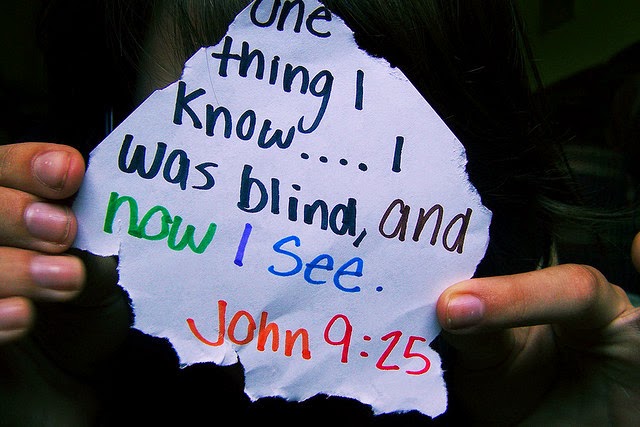 One
thing I
know.... I
was blind, and
now I see.
John 9:25